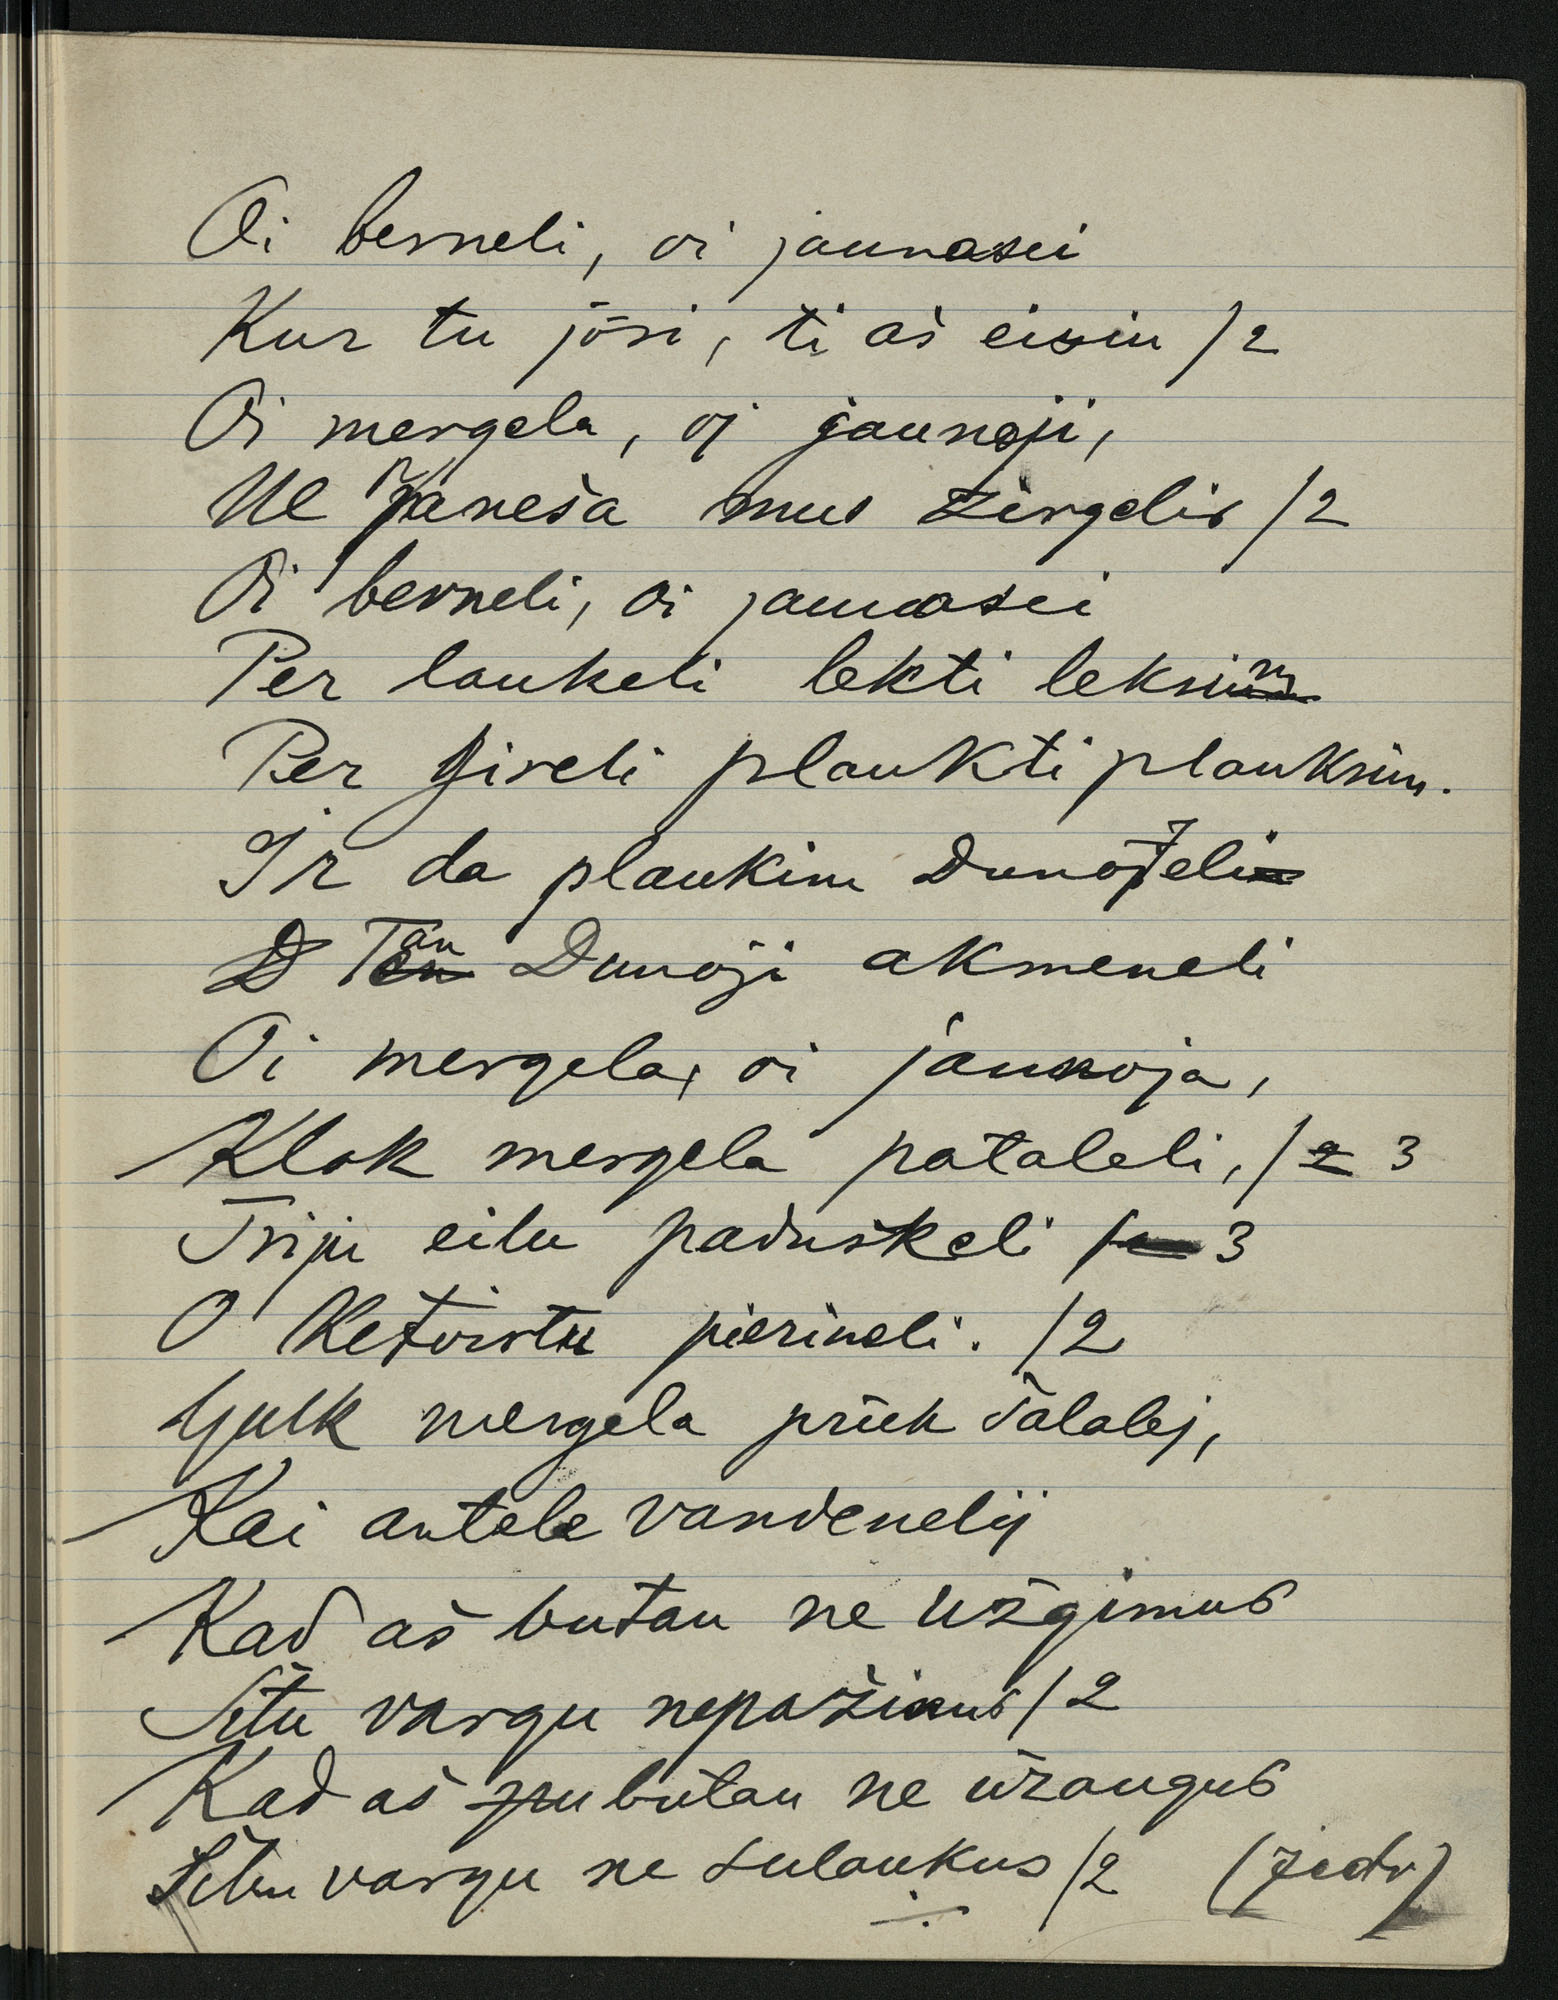 Oi berneli, oi jaunasei
Kur tu jōsi, ti aš eisiu /2
Oi mergela, oj jaunoji,
Ne paneša mus žirgelis /2
Oi berneli, oi jaunasei
Per laukeli lekti leksim
Per gireli plaukti plauksim.
Ir da plaukim Dunojeli
D Tan Dunoji akmeneli
Oi mergela, oi jaunoja,
Klok mergela pataleli, /2 3
Triju eilu paduškeli / 3
O Ketvirtu pierineli. /2
Gulk mergela priek šalalej,
Kai antele vandenelij
Kad aš butau ne užgimus
Šitu vargu nepažinus /2
Kad aš butau ne užaugus
Šitu vargu ne sulaukus /2